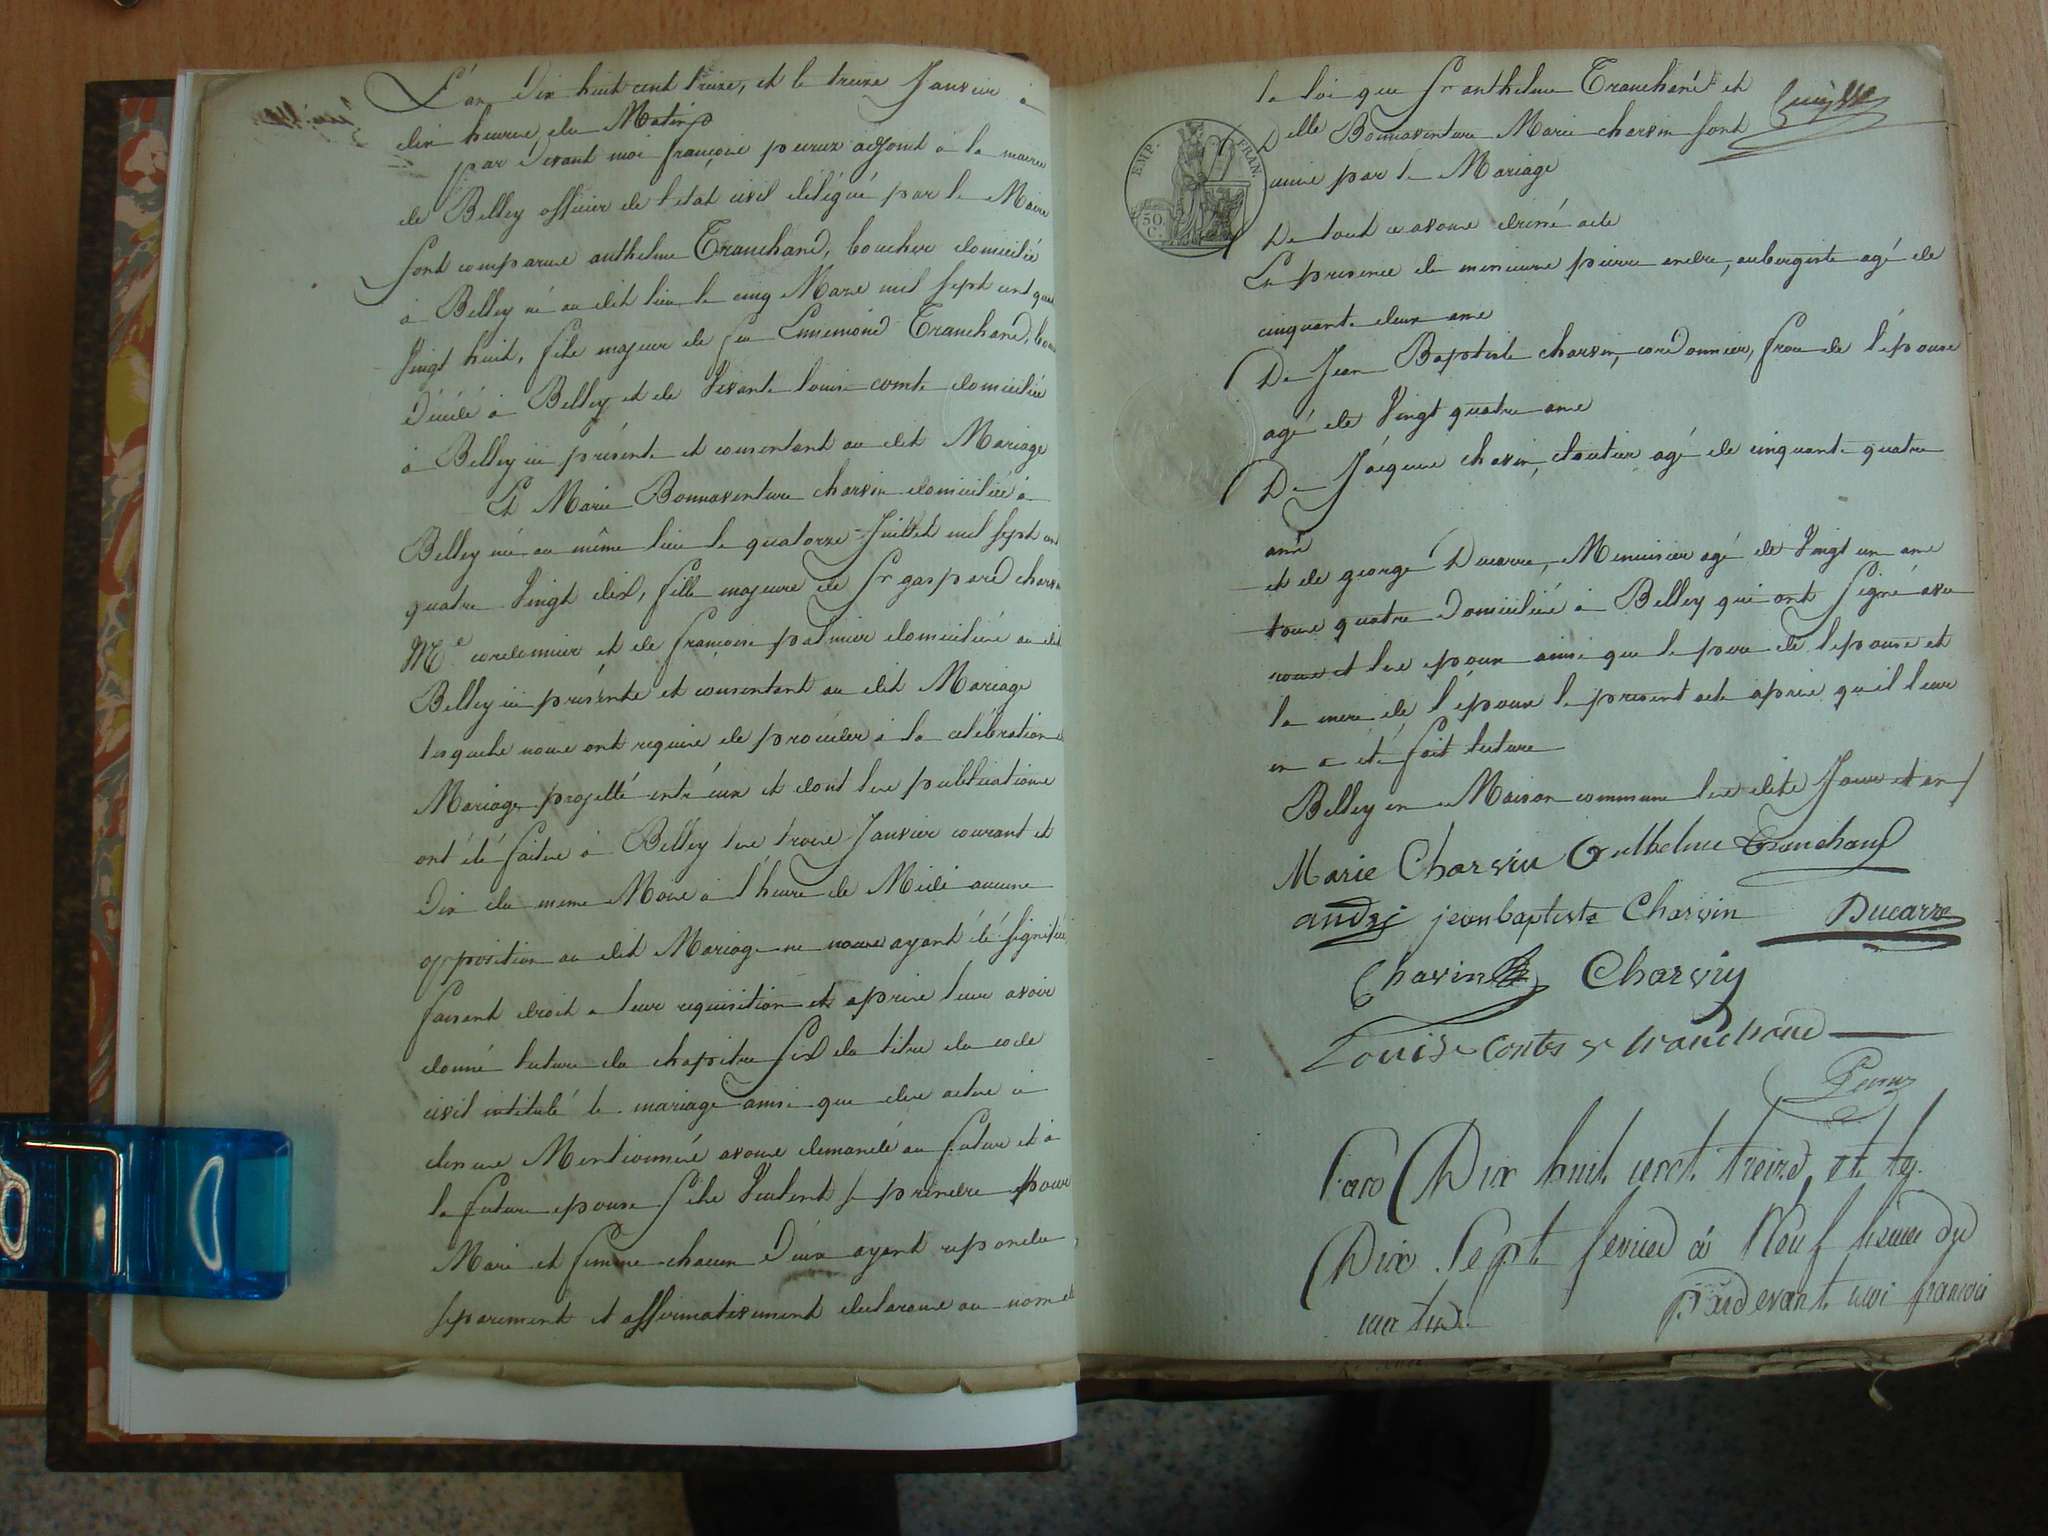 L'an Dix huit cent treize, et le treize Janvier à
dix heures du Matin
par devant moi françois peroux adjoint à la mairie
de Belley officier de l'état civil délégué par le Maire
sont comparus anthelme Tranchand, boucher domicilié
à Belley né au dit lieu le cinq Mars mil sept cent quatre
Vingt huit, fils majeur de feu Ennemond Tranchand,
Décédé à Belley et de Vivante louise comte domiciliée
à Belley ici présente et consentant au dit Mariage
Et Marie Bonnaventure charvin domiciliée à
Belley née au même lieu le quatorze Juillet mil sept cent
quatre Vingt dix, fille majeure de Sr gaspard charvin
Me cordonnier et de françoise palmier domiciliés au dit
Belley ici présents et consentant au dit Mariage
lesquels nous ont requis de procéder à la célébration du
Mariage projetté entr'eux et dont les publications
ont été faites à Belley les trois Janvier courant et
Dix du meme Mois à l'heure de Midi aucune
opposition au dit Mariage ne nous ayant été signifiée
faisant droit a leur requisition et apres leur avoir
donné lecture du chapitre six du titre du code
civil intitulé le mariage ainsi que des actes ci
dessus Mentionnés avons demandé au futur et à
la future epouse s'ils Veulent se prendre pour
Mari et femme chacun D'eux ayant repondu
separement et affirmativement declarons au nom de
la loi que Sr anthelme Tranchand et
Delle Bonnaventure Marie charvin sont
unis par le Mariage
EMP. FRAN.
50 C.
De tout ce avons dressé acte
En presence de messieurs pierre andre, aubergiste agé de
cinquante deux ans
De Jean Baptiste charvin, cordonnier, frere de l'épouse
agé de Vingt quatre ans
De Jacques chavin, cloutier agé de cinquante quatre
ans
et de george Ducarre, Menuisier agé de Vingt un ans
tous quatre Domiciliés à Belley qui ont signé avec
nous et les epoux ainsi que le pere de l'epouse et
la mere de l'époux le present acte apres qu'il leur
en a été fait lecture
Belley en Maison commune les dits Jour et an
Marie Charvin Anthelme Tranchand
andre jeanbaptiste Charvin Ducarre
Chavin Charvin
Louise Conte Tranchand
Peroux
L'an Dix huit cent treize, et le
Dix Sept fevrier à Neuf heures du
matin. Pardevant moi françois